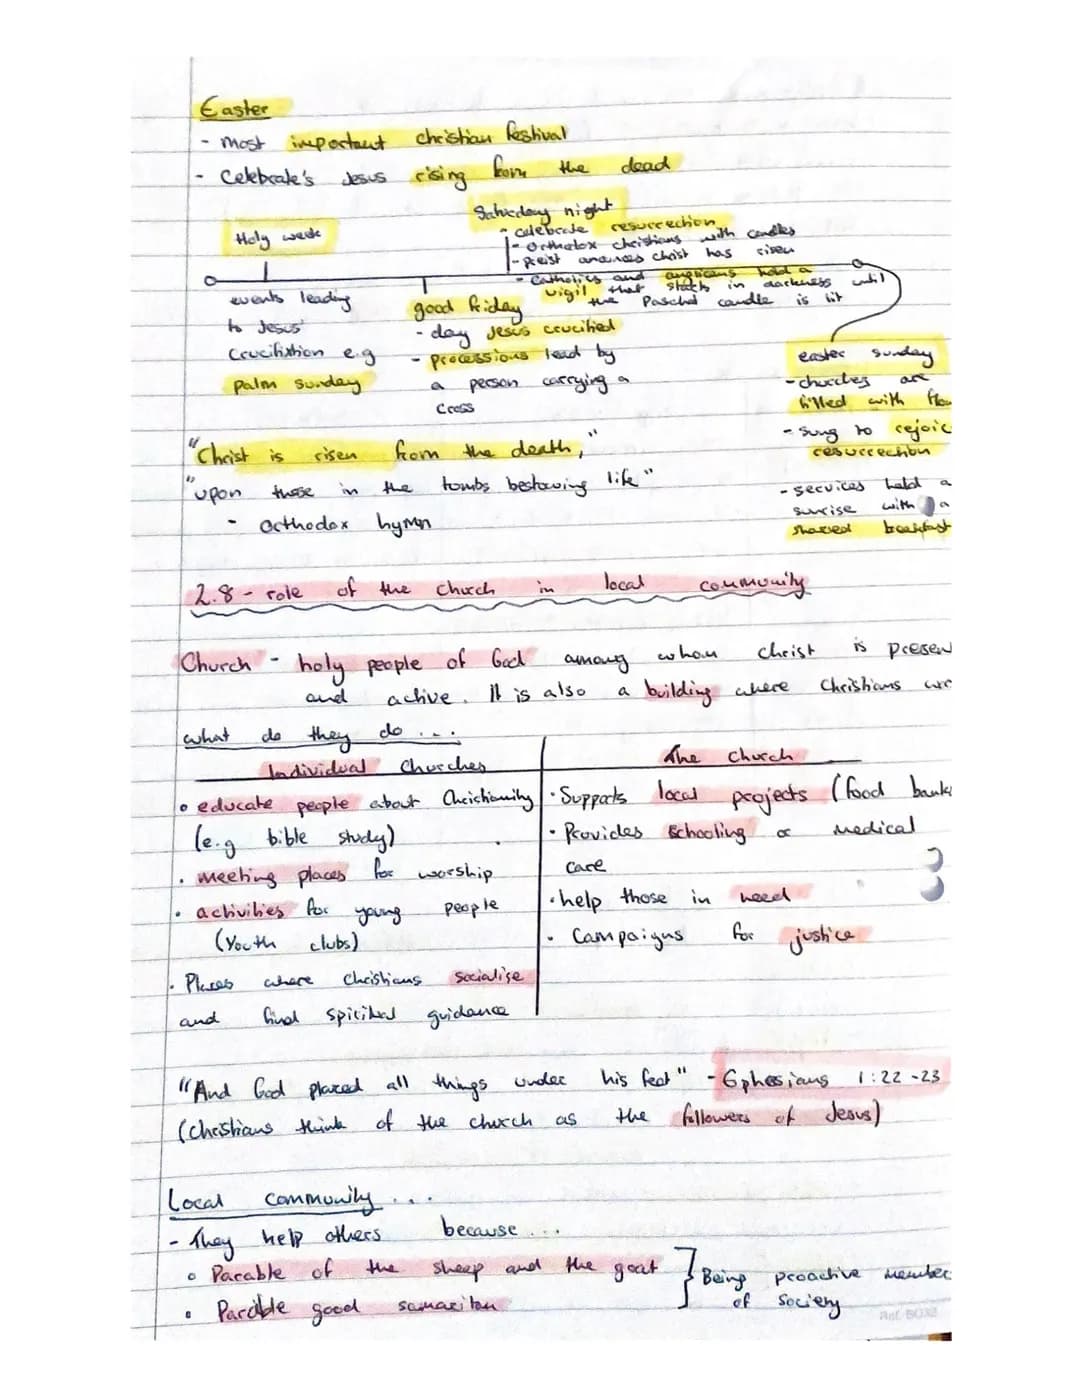 Easter
- most important christian festival
- Celebrate's Jesus rising from the dead
Saturday night
- celebrate resurrection
- Orthotox christians with candles
- preist anounces christ has risen
- Catholics and anglicans hold a
vigil that starts in darkness until
the Paschal candle is lit
Holy week
events leading
to Jesus'
Crucifixtion e.g
palm sunday
good friday
- day Jesus crucified
- processions lead by
a person carrying a
cross
easter sunday
- churches are
filled with
- sung to rejoic
resurrection
- services held a
sunrise with a
shared breakfast
"Christ is risen from the death,"
"upon those in the tombs bestowing life"
- orthodox hymn
2.8 - role of the church in local community
Church - holy people of God among whom christ is presen
and active. It is also a building where Christians
what do they do ...
Individual Churches
• educate people about Christianity
(e.g bible study)
• meeting places for worship
• activities for young people
(Youth clubs)
• Places where christians socialise
and find spiritual guidance
The church
• Supports local projects (food bank
• Provides schooling or medical
care
• help those in need
• Campaigns for justice
"And God placed all things under his feet" - Ephesians 1:22-23
(christians think of the church as the followers of Jesus)
Local community ...
- They help others because ...
• Parable of the sheep and the goat
• Parable good samaritan
} Being proactive member
of society
Ref: 5032